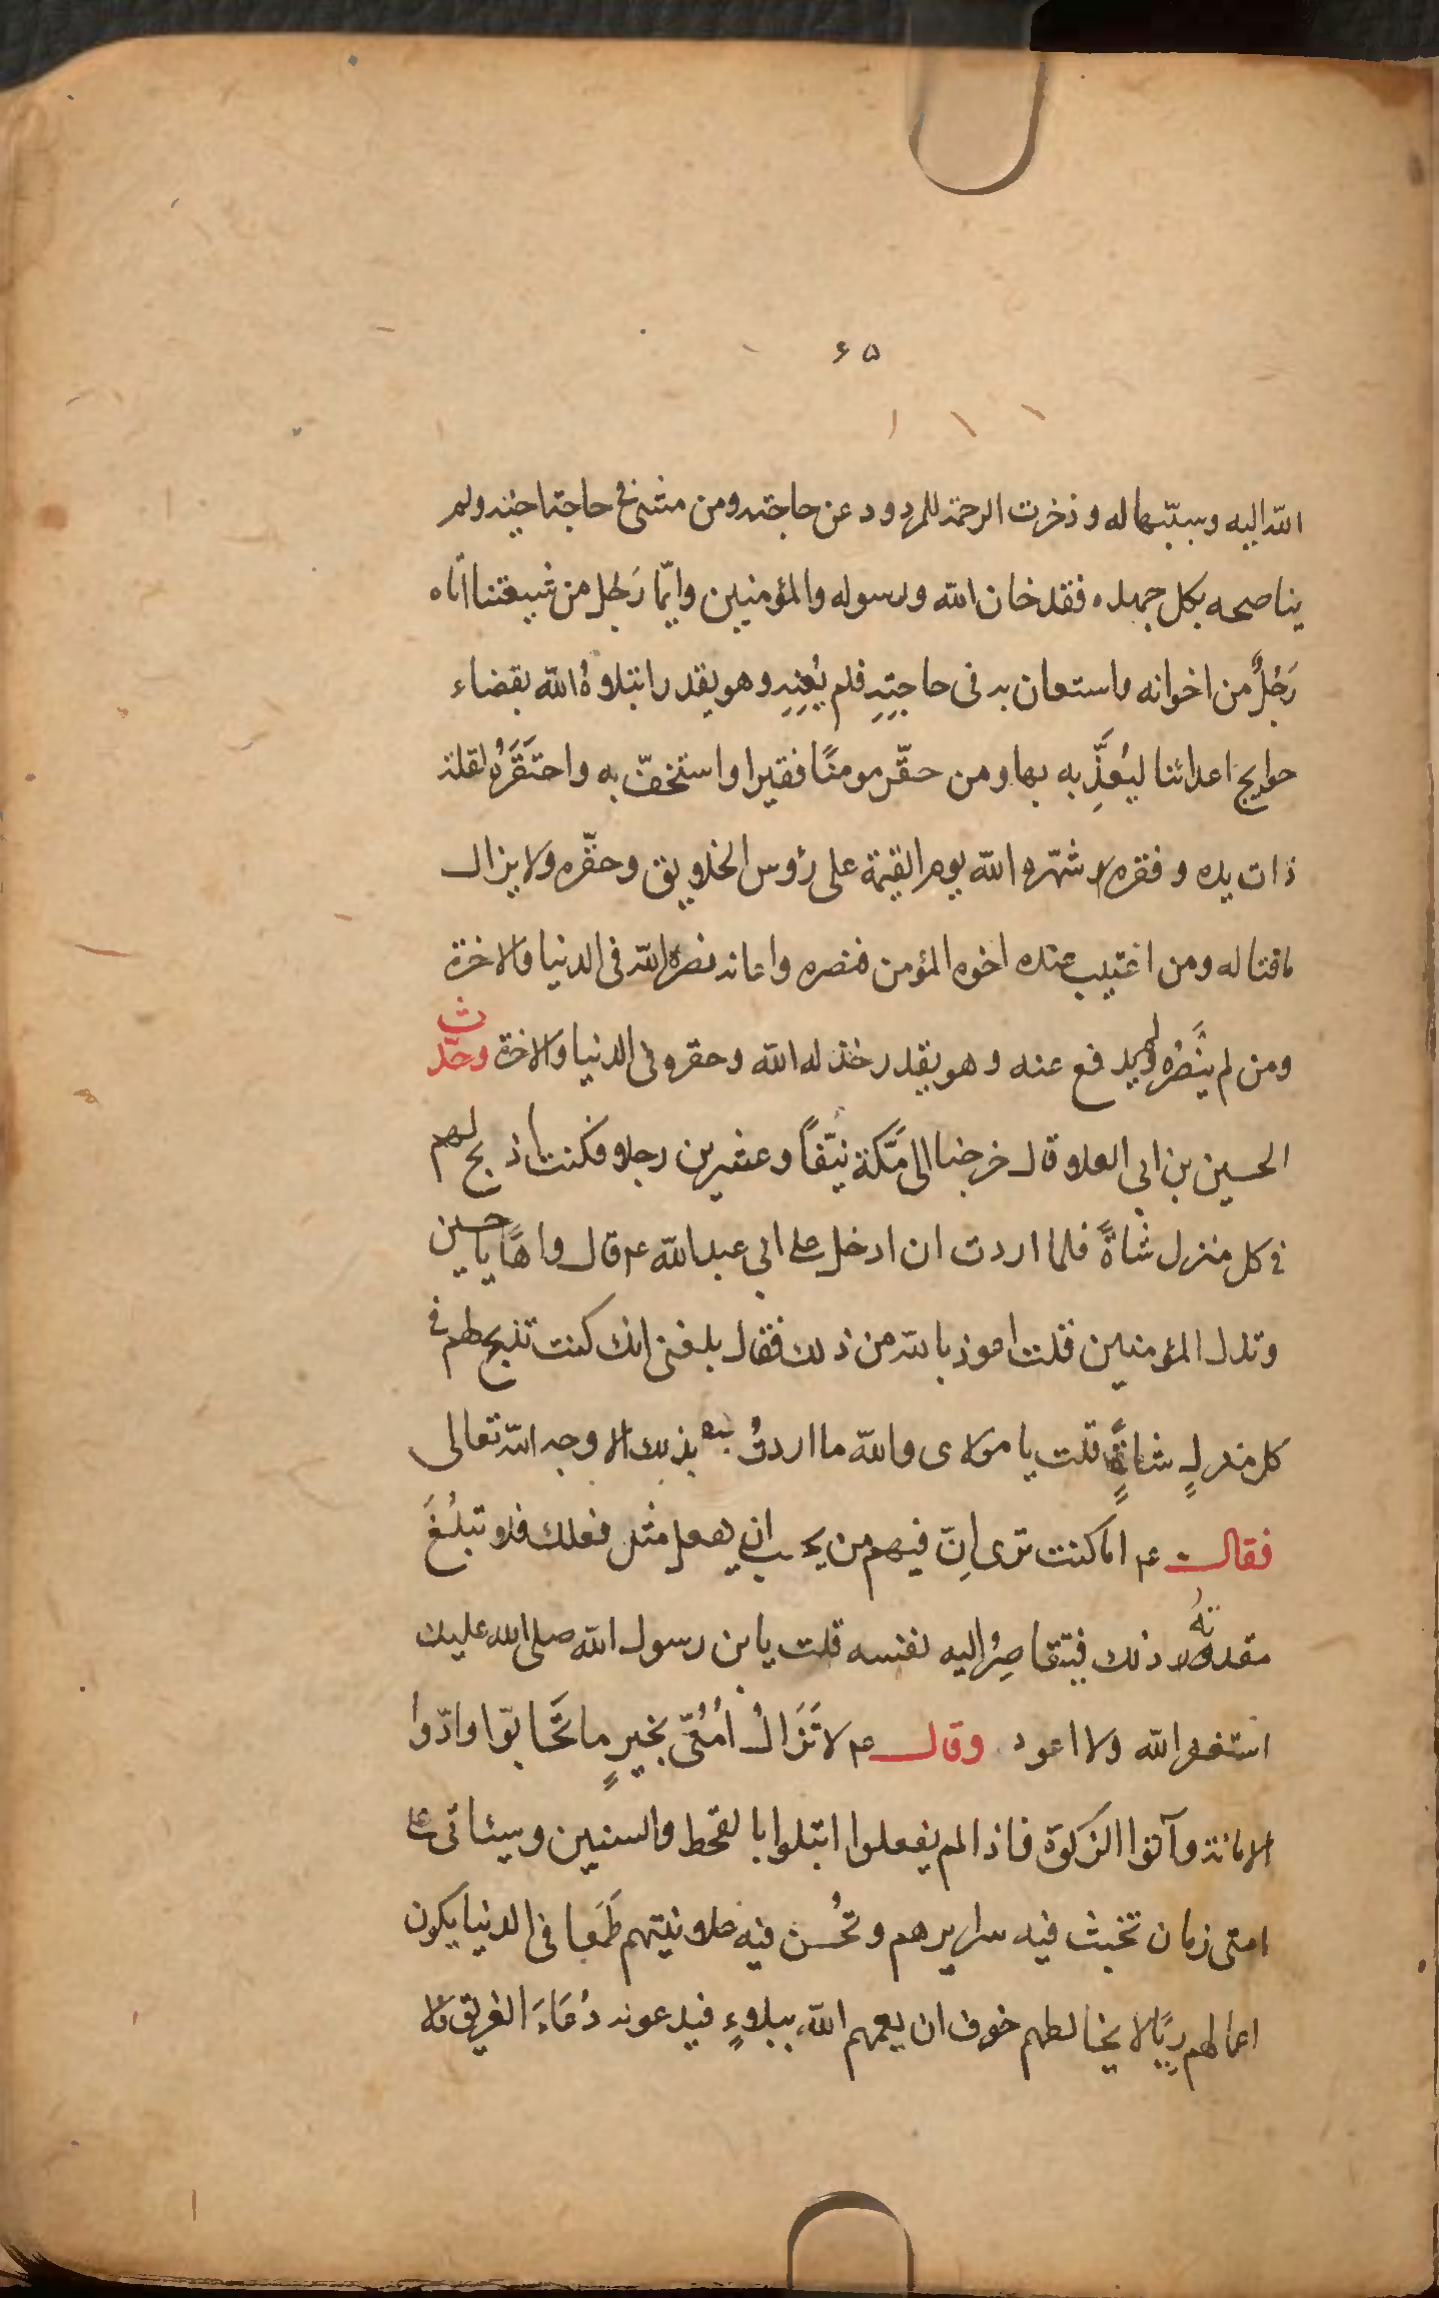 ۶۵
الله اليه وسببها له وذخرت الرحمة للمردود عن حاجته ومن مشى فى حاجة اخيه ولم
يناصحه بكل جهده فقد خان الله ورسوله والمؤمنين وايّما رَجُل من شيعتنا اتاه
رَجُلٌ من اخوانه واستعان به فى حاجتِهِ فلم يُعِنِه وهو يقدر ابتلاوهُ الله بقضاء
حوايج اعدائنا ليُعَذِّبه بها ومن حقّر مومنًا فقيرا واستخفّ به واحتَقَرَهُ لقلة
ذات يده وفقره شهّره الله يوم القيمة على رؤس الخلايق وحقّره ولا يزال
ماقتا له ومن اغتيب عنده اخوه المؤمن فنصره واعانه نصره الله فى الدنيا والاخرة
ومن لم ينَصُره ولم يدفع عنه وهو يقدر خذله الله وحقره فى الدنيا والاخرة وحدّث
الحسين بن ابى العلاء قال خرجنا الى مَكّة نيّفاً وعشرين رجلا فكنت اذبح لهم
فى كل منزل شاةً فلما اردت ان ادخل على ابى عبد الله ع قال واهًا يا حسين
وتذل المؤمنين قلت اعوذ بالله من ذلك فقال بلغنى انك كنت تذبح لهم فى
كل منزلٍ شاةً قلت يا مولاى والله ما اردتُ بذلك الا وجه الله تعالى
فقال ع اما كنت ترى اِنّ فيهم من يحب ان يفعل مثل فعلك فلا تبلُغَ
مقدرتُهُ ذلك فيتقاصِرُ اليه نفسه قلت يا بن رسول الله صلى الله عليك
استغفر الله ولا اعود وقال ع لا تَزَالُ اُمّتى بخيرٍ ما تَحَابوّا وادّوا
الامانة وآتوا الزكوة فاذا لم يفعلوا ابتلوا بالقحط والسنين وسيئاتى على
امتى زمان تخبث فيه سرايرهم وتحُسن فيه علانيتهم طَمَعا فى الدنيا يكون
اعمالهم رِيًا لا يخالطهم خوف ان يعمهم الله ببلاءٍ فيدعونه دُعَاءَ الغريق فلا